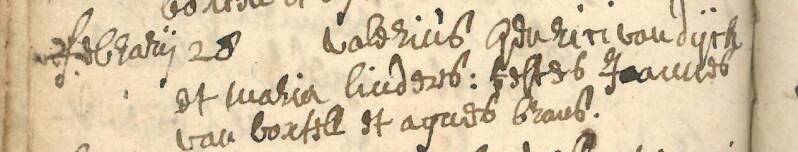 februarij 28 valerius henrici van dijck
et maria linders: testes Joannes
van boxtell et agnes braus.